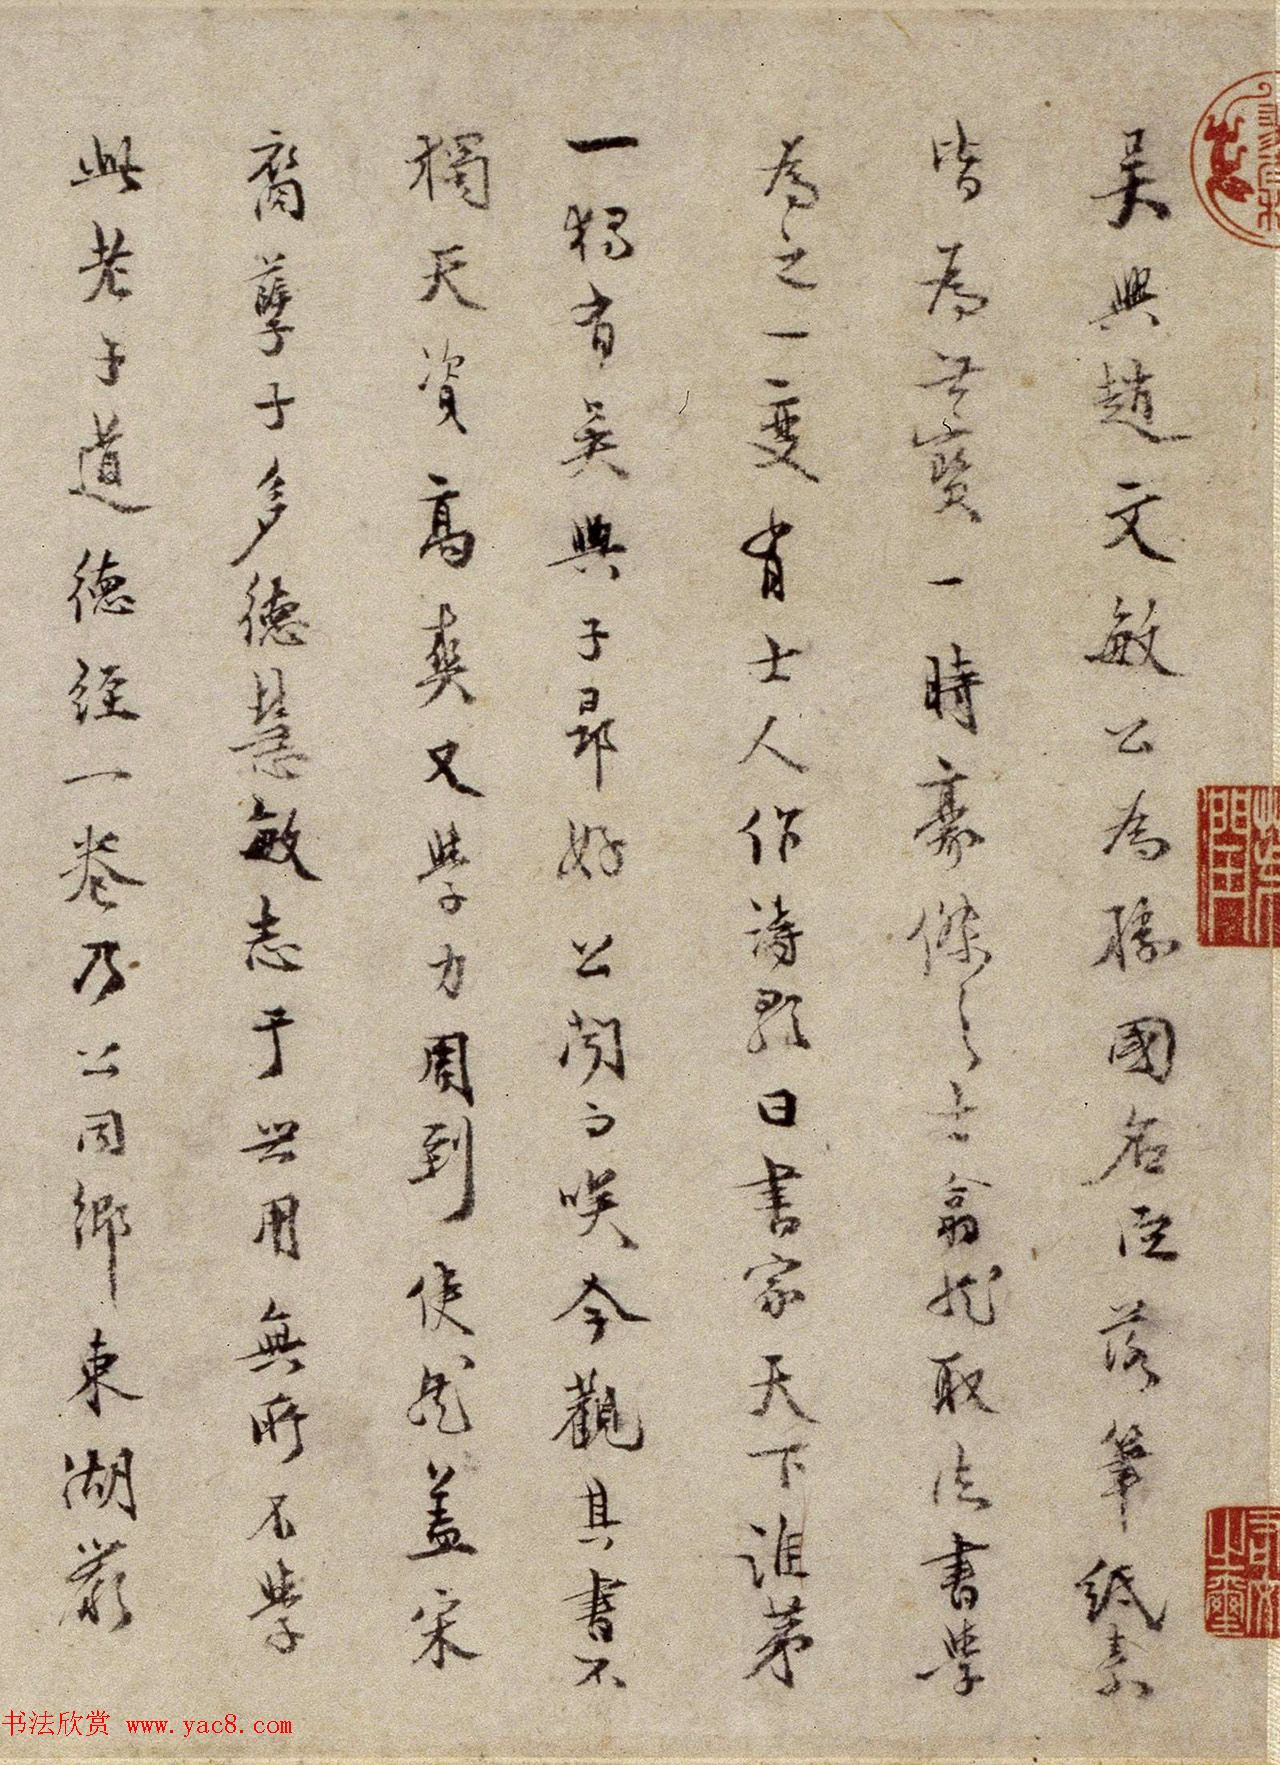 吳興趙文敏公為勝國名臣落筆紙素
皆為世寶一時豪傑之士翕然取法書學
為之一變有士人作詩題曰書家天下誰第
一獨有吳興子昂好公聞而笑今觀其書不
獨天資高爽又學力周到使然蓋宋
裔孽子多德慧敏志于世用無所不學
此老子道德經一卷乃公同鄉東湖嚴
书法欣赏 www.yac8.com